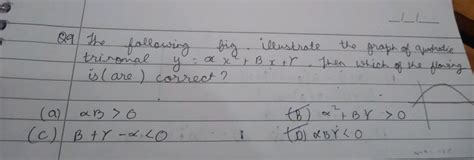 Q9 The following fig. illustrate the graph of quadratic
trinomal y = αx² + Bx + r. Then which of the flowing
is (are) correct?
(a) αB > 0 (B) α² + BY > 0
(C) B + r - α < 0 (D) αBY < 0